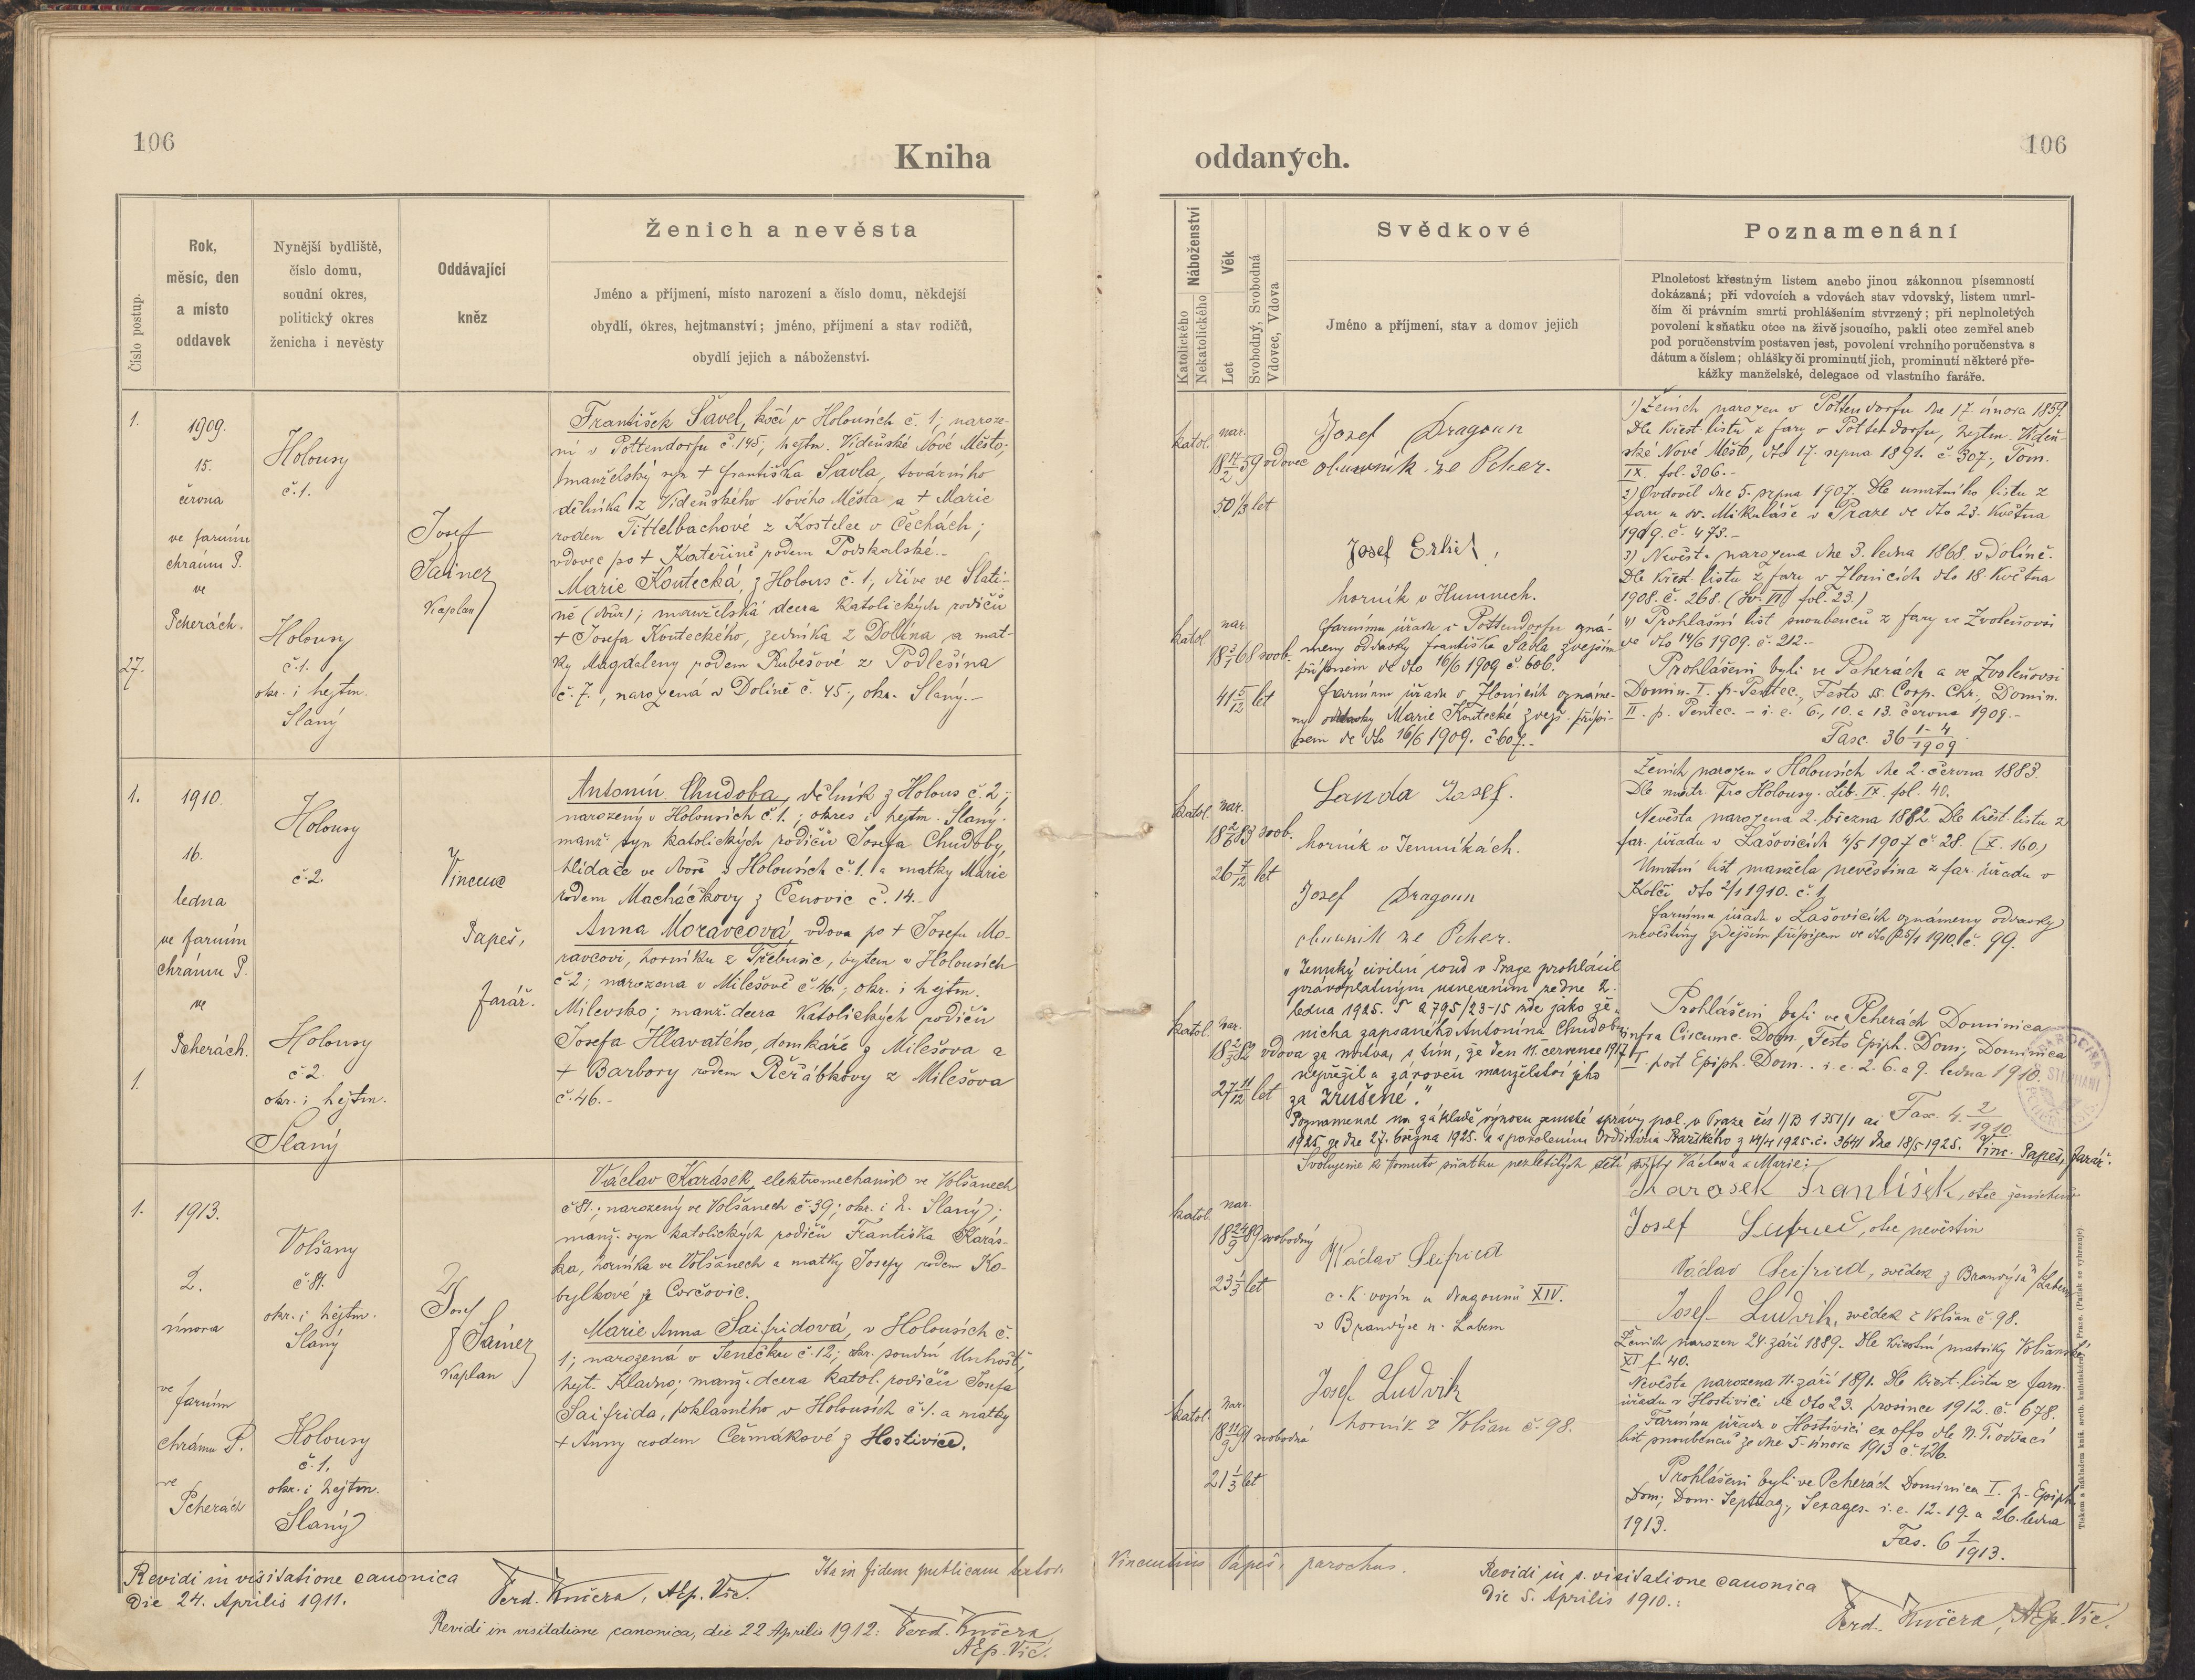 106
Kniha
Číslo postup.
Rok,
měsíc, den
a místo
oddavek
Nynější bydliště,
číslo domu,
soudní okres,
politický okres
ženicha i nevěsty
Oddávající
kněz
Ženich a nevěsta
Jméno a příjmení, místo narození a číslo domu, někdejší
obydlí, okres, hejtmanství; jméno, příjmení a stav rodičů,
obydlí jejich a náboženství.
1.
1909.
15.
června
ve farním
chrámu P.
ve
Pcherách.
27.
Holousy
č.1.
Holousy
č.1.
okr. i hejtm.
Slaný
Josef
Šainer
Kaplan
František Šavel, kočí v Holousích č. 1; naroze-
ný v Pottendorfu č. 145, hejtm. Vídeňské Nové Město;
manželský syn + Františka Šavla, továrního
dělníka z Vídeňského Nového Města a + Marie
rodem Tittelbachové z Kostelce v Čechách;
vdovec po + Kateřině rodem Podskalské.-
Marie Koutecká, z Holous č. 1, dříve ve Slati-
ně (dvůr); manželská dcera katolických rodičů
+ Josefa Kouteckého, zedníka z Dolína a mat-
ky Magdaleny rodem Rubešové z Podlešína
č. 7., narozená v Dolíně č. 45., okr. Slaný.-
1.
1910.
16.
ledna
ve farním
chrámu P.
ve
Pcherách.
1.
Holousy
č.2.
Holousy
č.2.
okr. i hejtm.
Slaný
Vincenc
Papeš,
farář.
Antonín Chudoba, dělník z Holous č. 2;
narozený v Holousích č. 1.; okres i hejtm. Slaný.
manž. syn katolických rodičů Josefa Chudoby,
hlídače ve dvoře v Holousích č. 1. a matky Marie
rodem Macháčkovy z Čenovic č. 14.-
Anna Moravcová vdova po + Josefu Mo-
ravcovi, horníku z Třebusic, bytem v Holousích
č. 2; narozena v Milešově č. 46.; okr. i hejtm.
Milevsko; manž. dcera katolických rodičů
Josefa Hlavatého, domkáře z Milešova a
+ Barbory rodem Řeřábkovy z Milešova
č. 46.-
1.
1913.
2.
února
ve farním
chrámu P.
ve
Pcherách
Volšany
č. 81.
okr. i hejtm.
Slaný
Holousy
č. 1.
okr. i hejtm.
Slaný
Josef
Šainer
Kaplan
Václav Karásek, elektromechanik ve Volšanech
č. 81.; narozený ve Volšanech č. 39; okr. i h. Slaný;
manž. syn katolických rodičů Františka Karás-
ka, horníka ve Volšanech a matky Josefy rodem Ko-
bylkové
Marie Anna Saifridová, v Holousích č.
1; narozená v Jenečku č. 12; okr. soudní Unhošť,
hejt. Kladno; manž. dcera katol. rodičů Josefa
Saifrida, poklasného v Holousích č. 1. a matky
+ Anny rodem Čermákové z Hostivice.
Revidi in visitatione canonica
Die 24. Aprilis 1911.
Ferd. Kučera, AEp. Vic.
Ita in fidem publicam
Revidi in visitatione canonica, die 22 Aprilis 1912: Ferd. Kučera
AEp. Vic.
oddaných.
106
Náboženství
Katolického
Nekatolického
Věk
Let
Svobodný, Svobodná
Vdovec, Vdova
Svědkové
Jméno a příjmení, stav a domov jejich
Poznamenání
Plnoletost křestným listem anebo jinou zákonnou písemností
dokázaná; při vdovcích a vdovách stav vdovský, listem umrl-
čím či právním smrti prohlášením stvrzený; při neplnoletých
povolení k sňatku otce na živě jsoucího, pakli otec zemřel aneb
pod poručenstvím postaven jest, povolení vrchního poručenstva s
dátum a číslem; ohlášky či prominutí jich, prominutí některé pře-
kážky manželské, delegace od vlastního faráře.
katol.
nar.
18 17/2 59 vdovec
50 1/3 let
Josef Dragoun
obuvník ze Pcher.
Josef Erlich
horník v Humnech.
katol.
nar.
18 3/1 68 svob.
41 5/12 let
Farnímu úřadu v Pottendorfu ozná-
meny oddavky Františka Šavla zdejším
přípisem de dto 16/6 1909 č. 606.
Farnímu úřadu v Zlonicích ozname-
ny oddavky Marie Koutecké zdejš. přípi-
sem de dto 16/6 1909. č. 607.-
1) Ženich narozen v Pottendorfu dne 17. února 1859.
Dle křest. listu z fary v Pottendorfu, hejtm. Vídeň-
ské Nové Město, dto 17. srpna 1891. č. 307., Tom.
IX. fol. 306.-
2) Ovdověl dne 5. srpna 1907. Dle umrtního listu z
fary u sv. Mikuláše v Praze de dto 23. května
1909. č. 473.-
3) Nevěsta narozena dne 3. ledna 1868. v Dolíně.
Dle křest. listu z fary v Zlonicích dto 18. května
1908. č. 268. (Lib. III fol. 23.)
4) Prohlašní list snoubenců z fary ve Zvoleňovsi
de dto 14/6 1909. č. 212.-
Prohlášeni byli ve Pcherách a ve Zvoleňovsi
Domin. I. p. Pentec., Festo ss. Corp. Chr., Domin.
II. p. Pentec. - i. e. 6., 10. a 13. června 1909.-
Fasc. 36 1-4/1909
katol.
nar.
18 2/6 83 svob.
26 7/12 let
Landa Josef.
horník v Jemníkách.
Josef Dragoun
obuvník ze Pcher.
katol.
nar.
18 2/3 82 vdova
27 11/12 let
„Zemský civilní soud v Praze prohlásil
právoplatným usnesením ze dne 2.
ledna 1925. T 2795/23-15 zde jako že-
nicha zapsaného Antonína Chudobu
za mrtva, s tím, že den 11. července 1917
nepřežil a zároveň manželství jeho
za zrušené."
Poznamenal na základě výnosu zemské správy pol. v Praze čís 1/B 1351/1 ai
1925, ze dne 27. března 1925. a s povolením Ordinariátu Pražského z 14/4 1925. č. 3641 dne 18/5 1925. Vinc. Papeš, farář.
Ženich narozen v Holousích dne 2. června 1883.
Dle matr. Pro Holousy. Lib. IX. fol. 40.
Nevěsta narozená 2. března 1882. Dle křest. listu z
far. úřadu v Lašovicích 4/5 1907 č. 28. (X. 160.)
Umrtní list manžela nevěstina z far. úřadu v
Kolči dto 2/1 1910. č. 1.
Farnímu úřadu v Lašovicích oznámeny oddavky
nevěstiny zdejším přípisem ve dto 25/1 1910. č. 99.
Prohlášeni byli ve Pcherách Dominica
infra Circumc. Dom., Festo Epiph. Dom., Dominica
I. post Epiph. Dom.. i. e. 2. 6. a 9. ledna 1910.
Fasc. 4. 2/1910
Svolujeme k tomuto sňatku nezletilých dětí
Václava a Marie:
Karasek František, otec ženichův
Josef, otec nevěstin
Václav Seifried, svědek z Brandýsa n/Labem
Josef Ludvik, svědek z Volšan č. 98.
katol.
nar.
18 24/9 89 svobodný
23 1/3 let
Václav Seifried
c. k. vojín u dragounů XIV.
v Brandýse n. Labem
katol.
nar.
18 11/9 91 svobodná
21 1/3 let
Josef Ludvik
horník z Volšan č. 98.
Ženich narozen 24. září 1889. Dle křestní matriky Volšanské
XI f. 40.
Nevěsta narozena 11. září 1891. Dle křest. listu z farn.
úřadu v Hostivici de dto 23. prosince 1912. č. 678.
Farnímu úřadu v Hostivici ex offo dle N. T. oddací
list snoubenců ze dne 5. února 1913 č. 126.
Prohlášeni byli ve Pcherách Dominica I. p. Epiph.
Dom; Dom. Septuag., Sexages. i. e. 12. 19. a 26. ledna
1913.
Fas. 6 1/1913.
Vincentius Papeš, parochus.
Revidi in s. visitatione canonica
Die 5. Aprilis 1910.:
Ferd. Kučera, AEp. Vic.